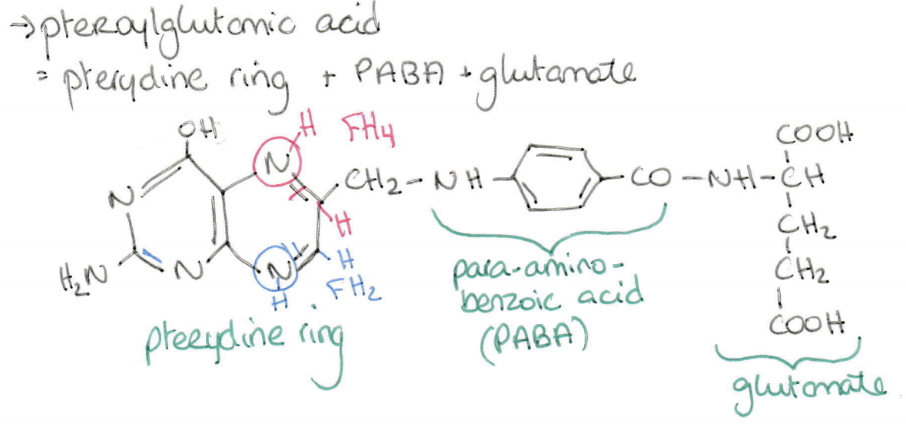 → pteroylglutamic acid
= pterydine ring + PABA + glutamate
OH
H
FH4
N
N
N
N
H₂N
CH₂-NH
CO-NH-CH
COOH
CH₂
CH₂
COOH
H
H
H
FH₂
para-amino-
benzoic acid
(PABA)
pterydine ring
glutamate